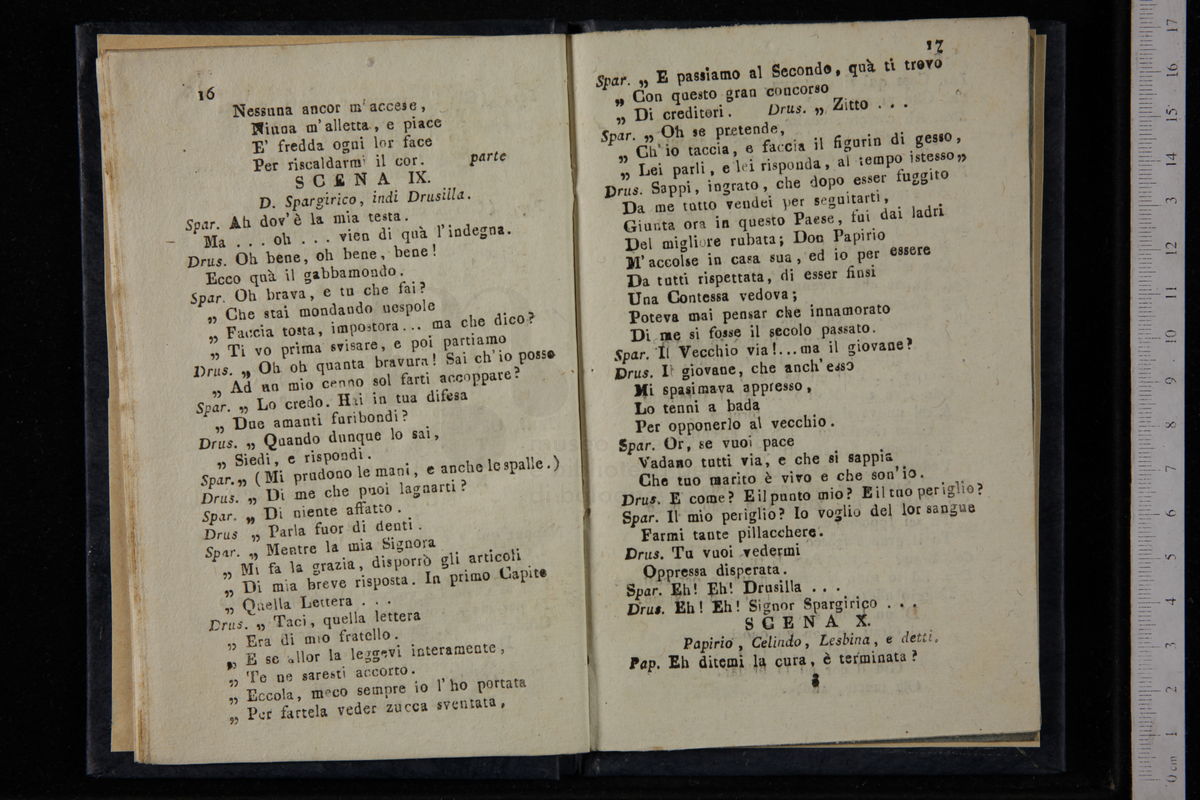 16
Nessuna ancor m'accese,
Niuna m'alletta, e piace
E' fredda ogni lor face
Per riscaldarmi il cor. parte
SCENA IX.
D. Spargirico, indi Drusilla.
Spar. Ah dov'è la mia testa.
Ma ... oh ... vien di quà l'indegna.
Drus. Oh bene, oh bene, bene!
Ecco quà il gabbamondo.
Spar. Oh brava, e tu che fai?
„ Che stai mondando nespole
„ Faccia tosta, impostora... ma che dico?
„ Ti vo prima svisare, e poi partiamo
Drus. „ Oh oh quanta bravura! Sai ch'io posso
„ Ad un mio cenno sol farti accoppare?
Spar. „ Lo credo. Hai in tua difesa
„ Due amanti furibondi?
Drus. „ Quando dunque lo sai,
„ Siedi, e rispondi.
Spar.„ (Mi prudono le mani, e anche le spalle.)
Drus. „ Di me che puoi lagnarti?
Spar. „ Di niente affatto.
Drus „ Parla fuor di denti.
Spar. „ Mentre la mia Signora
„ Mi fa la grazia, disporrò gli articoli
„ Di mia breve risposta. In primo Capite
„ Quella Lettera ...
Drus. „ Taci, quella lettera
„ Era di mio fratello.
„ E se allor la leggevi interamente,
„ Te ne saresti accorto.
„ Eccola, meco sempre io l'ho portata
„ Per fartela veder zucca sventata,
17
Spar. „ E passiamo al Secondo, quà ti trovo
„ Con questo gran concorso
„ Di creditori. Drus. „ Zitto ...
Spar. „ Oh se pretende,
„ Ch'io taccia, e faccia il figurin di gesso,
„ Lei parli, e lei risponda, al tempo istesso„
Drus. Sappi, ingrato, che dopo esser fuggito
Da me tutto vendei per seguitarti,
Giunta ora in questo Paese, fui dai ladri
Del migliore rubata; Don Papirio
M'accolse in casa sua, ed io per essere
Da tutti rispettata, di esser finsi
Una Contessa vedova;
Poteva mai pensar che innamorato
Di me si fosse il secolo passato.
Spar. Il Vecchio via!...ma il giovane?
Drus. Il giovane, che anch'esso
Mi spasimava appresso,
Lo tenni a bada
Per opponerlo al vecchio.
Spar. Or, se vuoi pace
Vadano tutti via, e che si sappia
Che tuo marito è vivo e che son'io.
Drus. E come? E il punto mio? E il tuo periglio?
Spar. Il mio periglio? Io voglio del lor sangue
Farmi tante pillacchere.
Drus. Tu vuoi vedermi
Oppressa disperata.
Spar. Eh! Eh! Drusilla ...
Drus. Eh! Eh! Signor Spargirico ...
SCENA X.
Papirio, Celindo, Lesbina, e detti.
Pap. Eh ditemi la cura, è terminata?